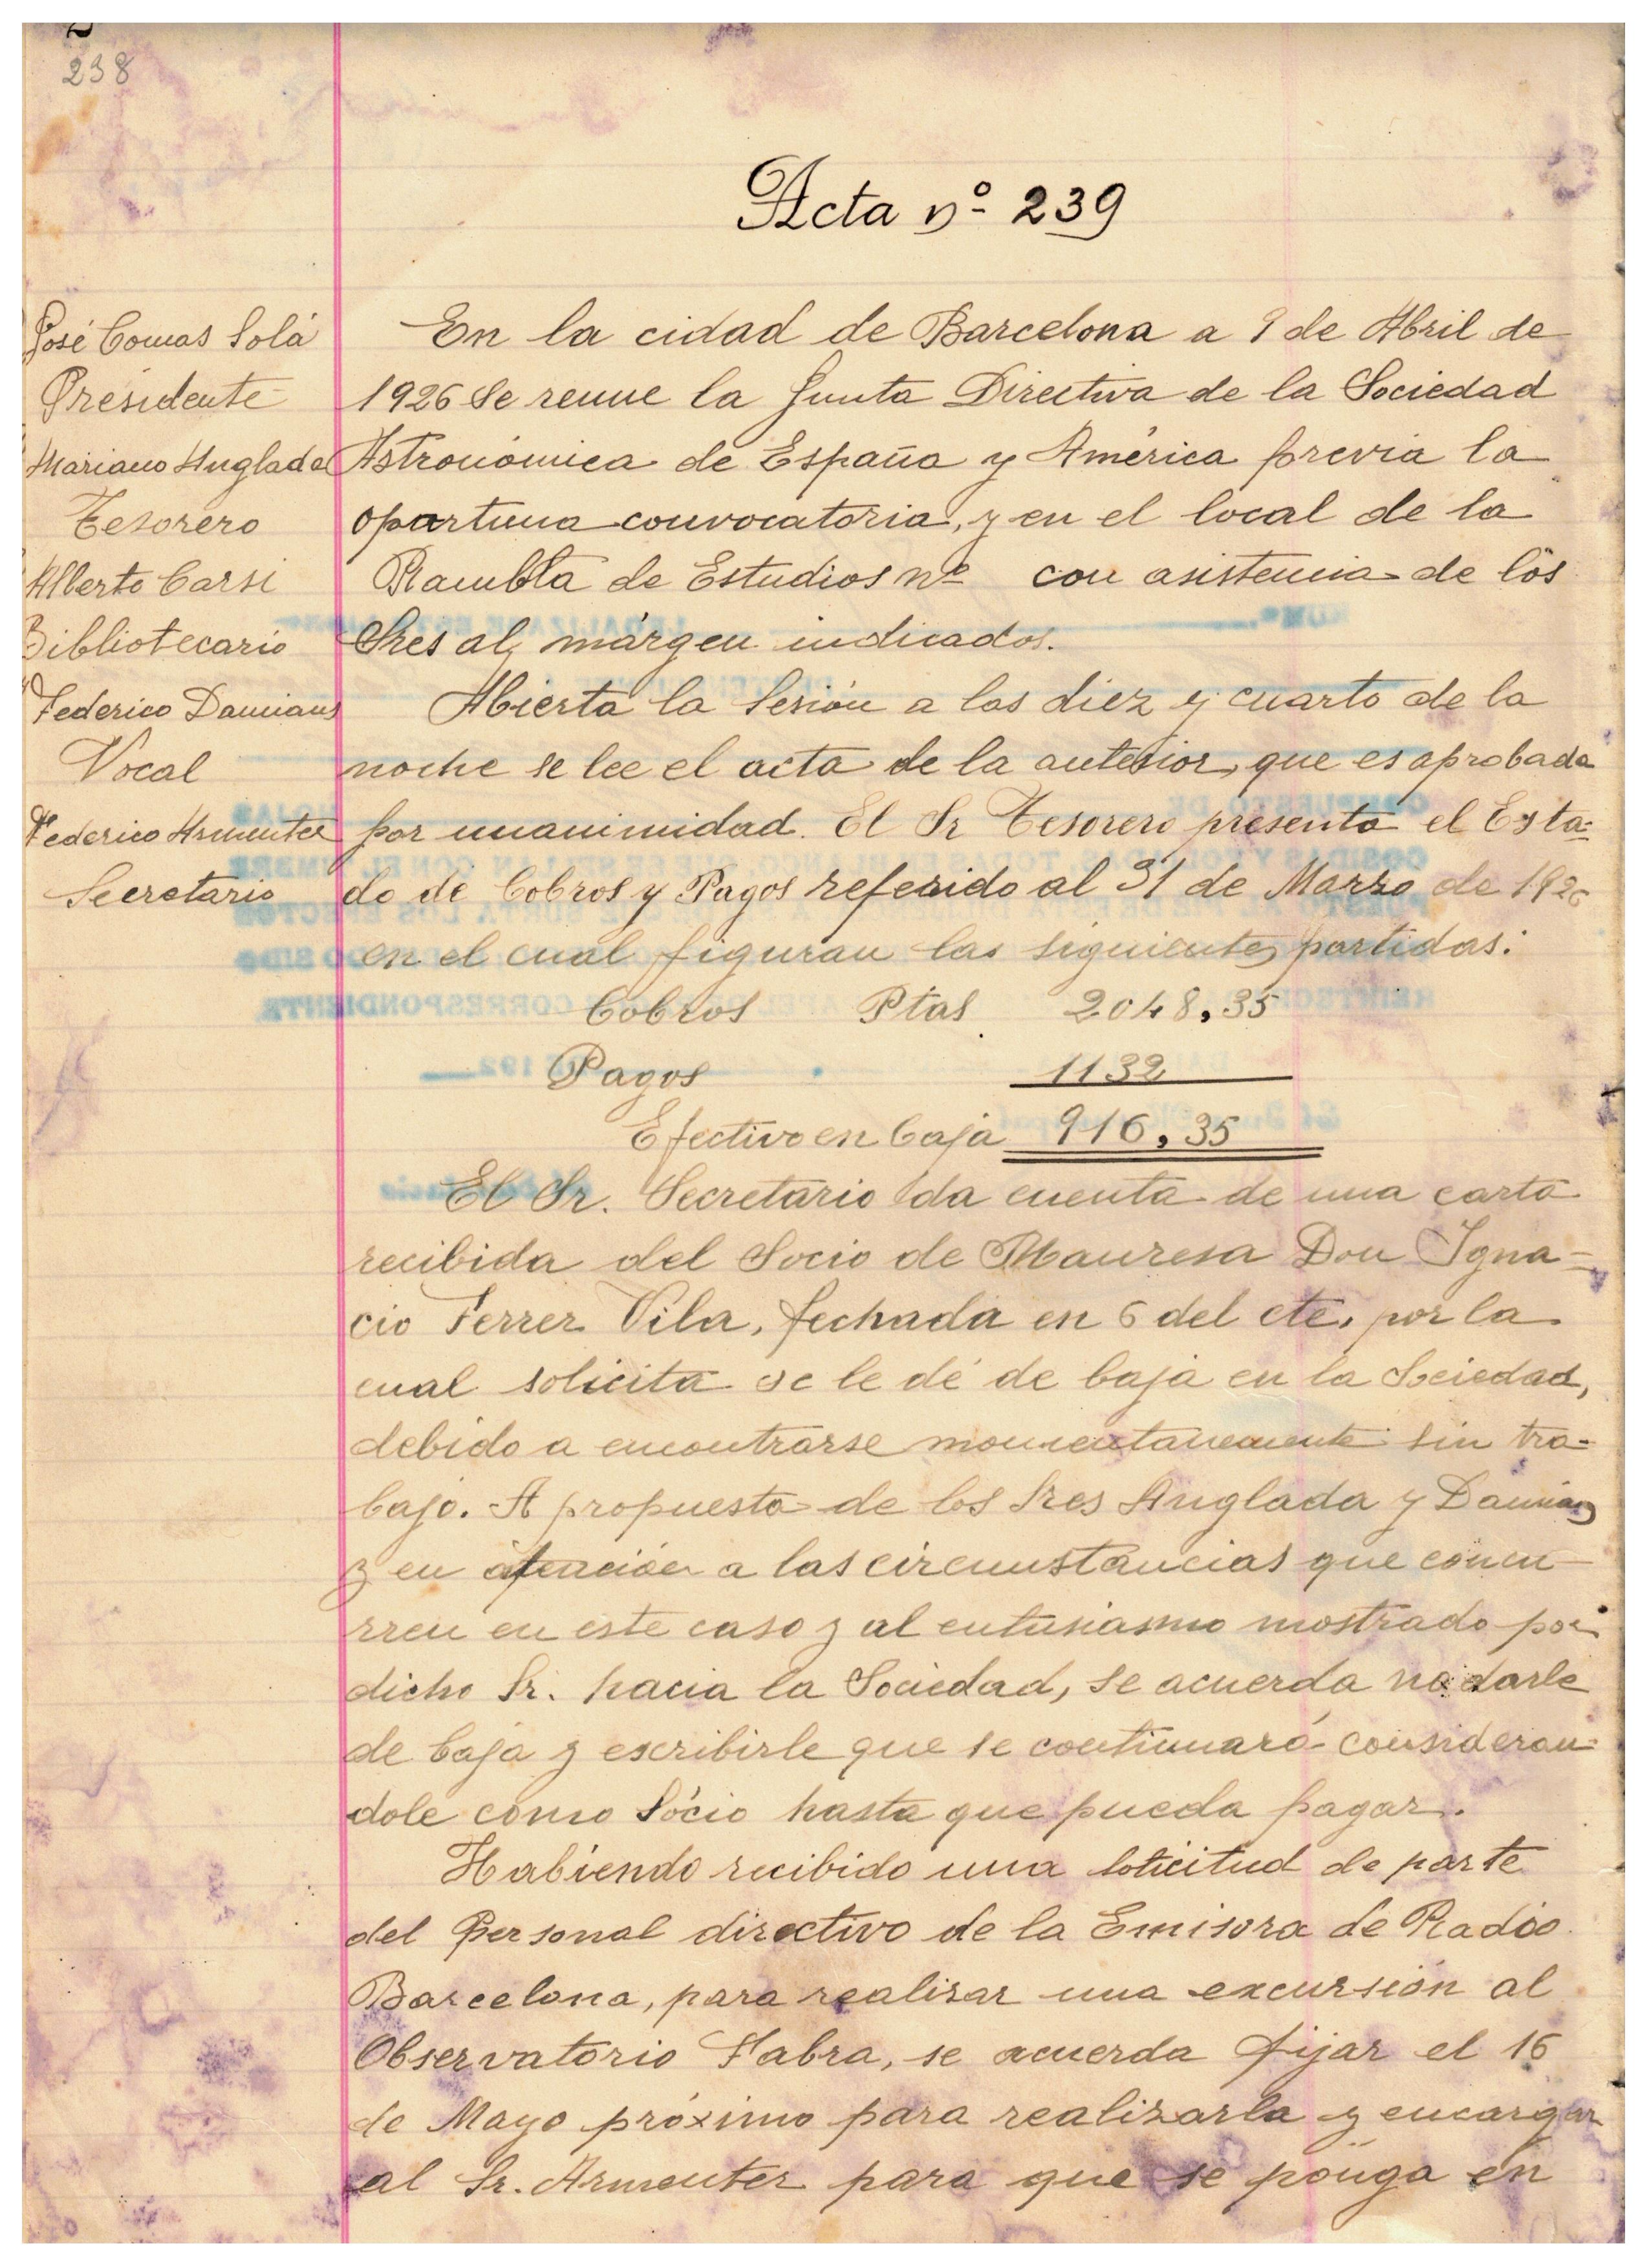 238
Acta nº 239
José Comas Solá
Presidente
Mariano Anglada
Tesorero
Alberto Carsi
Bibliotecario
Federico Damians
Vocal
Federico Armenter
Secretario
En la cidad de Barcelona a 9 de Abril de
1926 se reune la Junta Directiva de la Sociedad
Astronómica de España y América previa la
oportuna convocatoria, y en el local de la
Rambla de Estudios nº con asistencia de los
Sres al márgen indicados.
Abierta la Sesión a las diez y cuarto de la
noche se lee el acta de la anterior, que es aprobada
por unanimidad. El Sr Tesorero presenta el Esta-
do de Cobros y Pagos referido al 31 de Marzo de 1926
en el cual figuran las siguientes partidas:
Cobros Ptas 2048,35
Pagos 1132
Efectivo en Caja 916,35
El Sr. Secretario da cuenta de una carta
recibida del Socio de Manresa Don Igna-
cio Ferrer Vila, fechada en 6 del cte, por la
cual solicita se le dé de baja en la Sociedad,
debido a encontrarse momentaneamente sin tra-
bajo. A propuesta de los Sres Anglada y Damians
y en atención a las circunstancias que concu-
rren en este caso y al entusiasmo mostrado por
dicho Sr. hacia la Sociedad, se acuerda no darle
de baja y escribirle que se continuará consideran-
dole como Sócio hasta que pueda pagar.
Habiendo recibido una solicitud de parte
del Personal directivo de la Emisora de Radio
Barcelona, para realizar una excursión al
Observatorio Fabra, se acuerda fijar el 16
de Mayo próximo para realizarla y encargar
al Sr. Armenter para que se ponga en